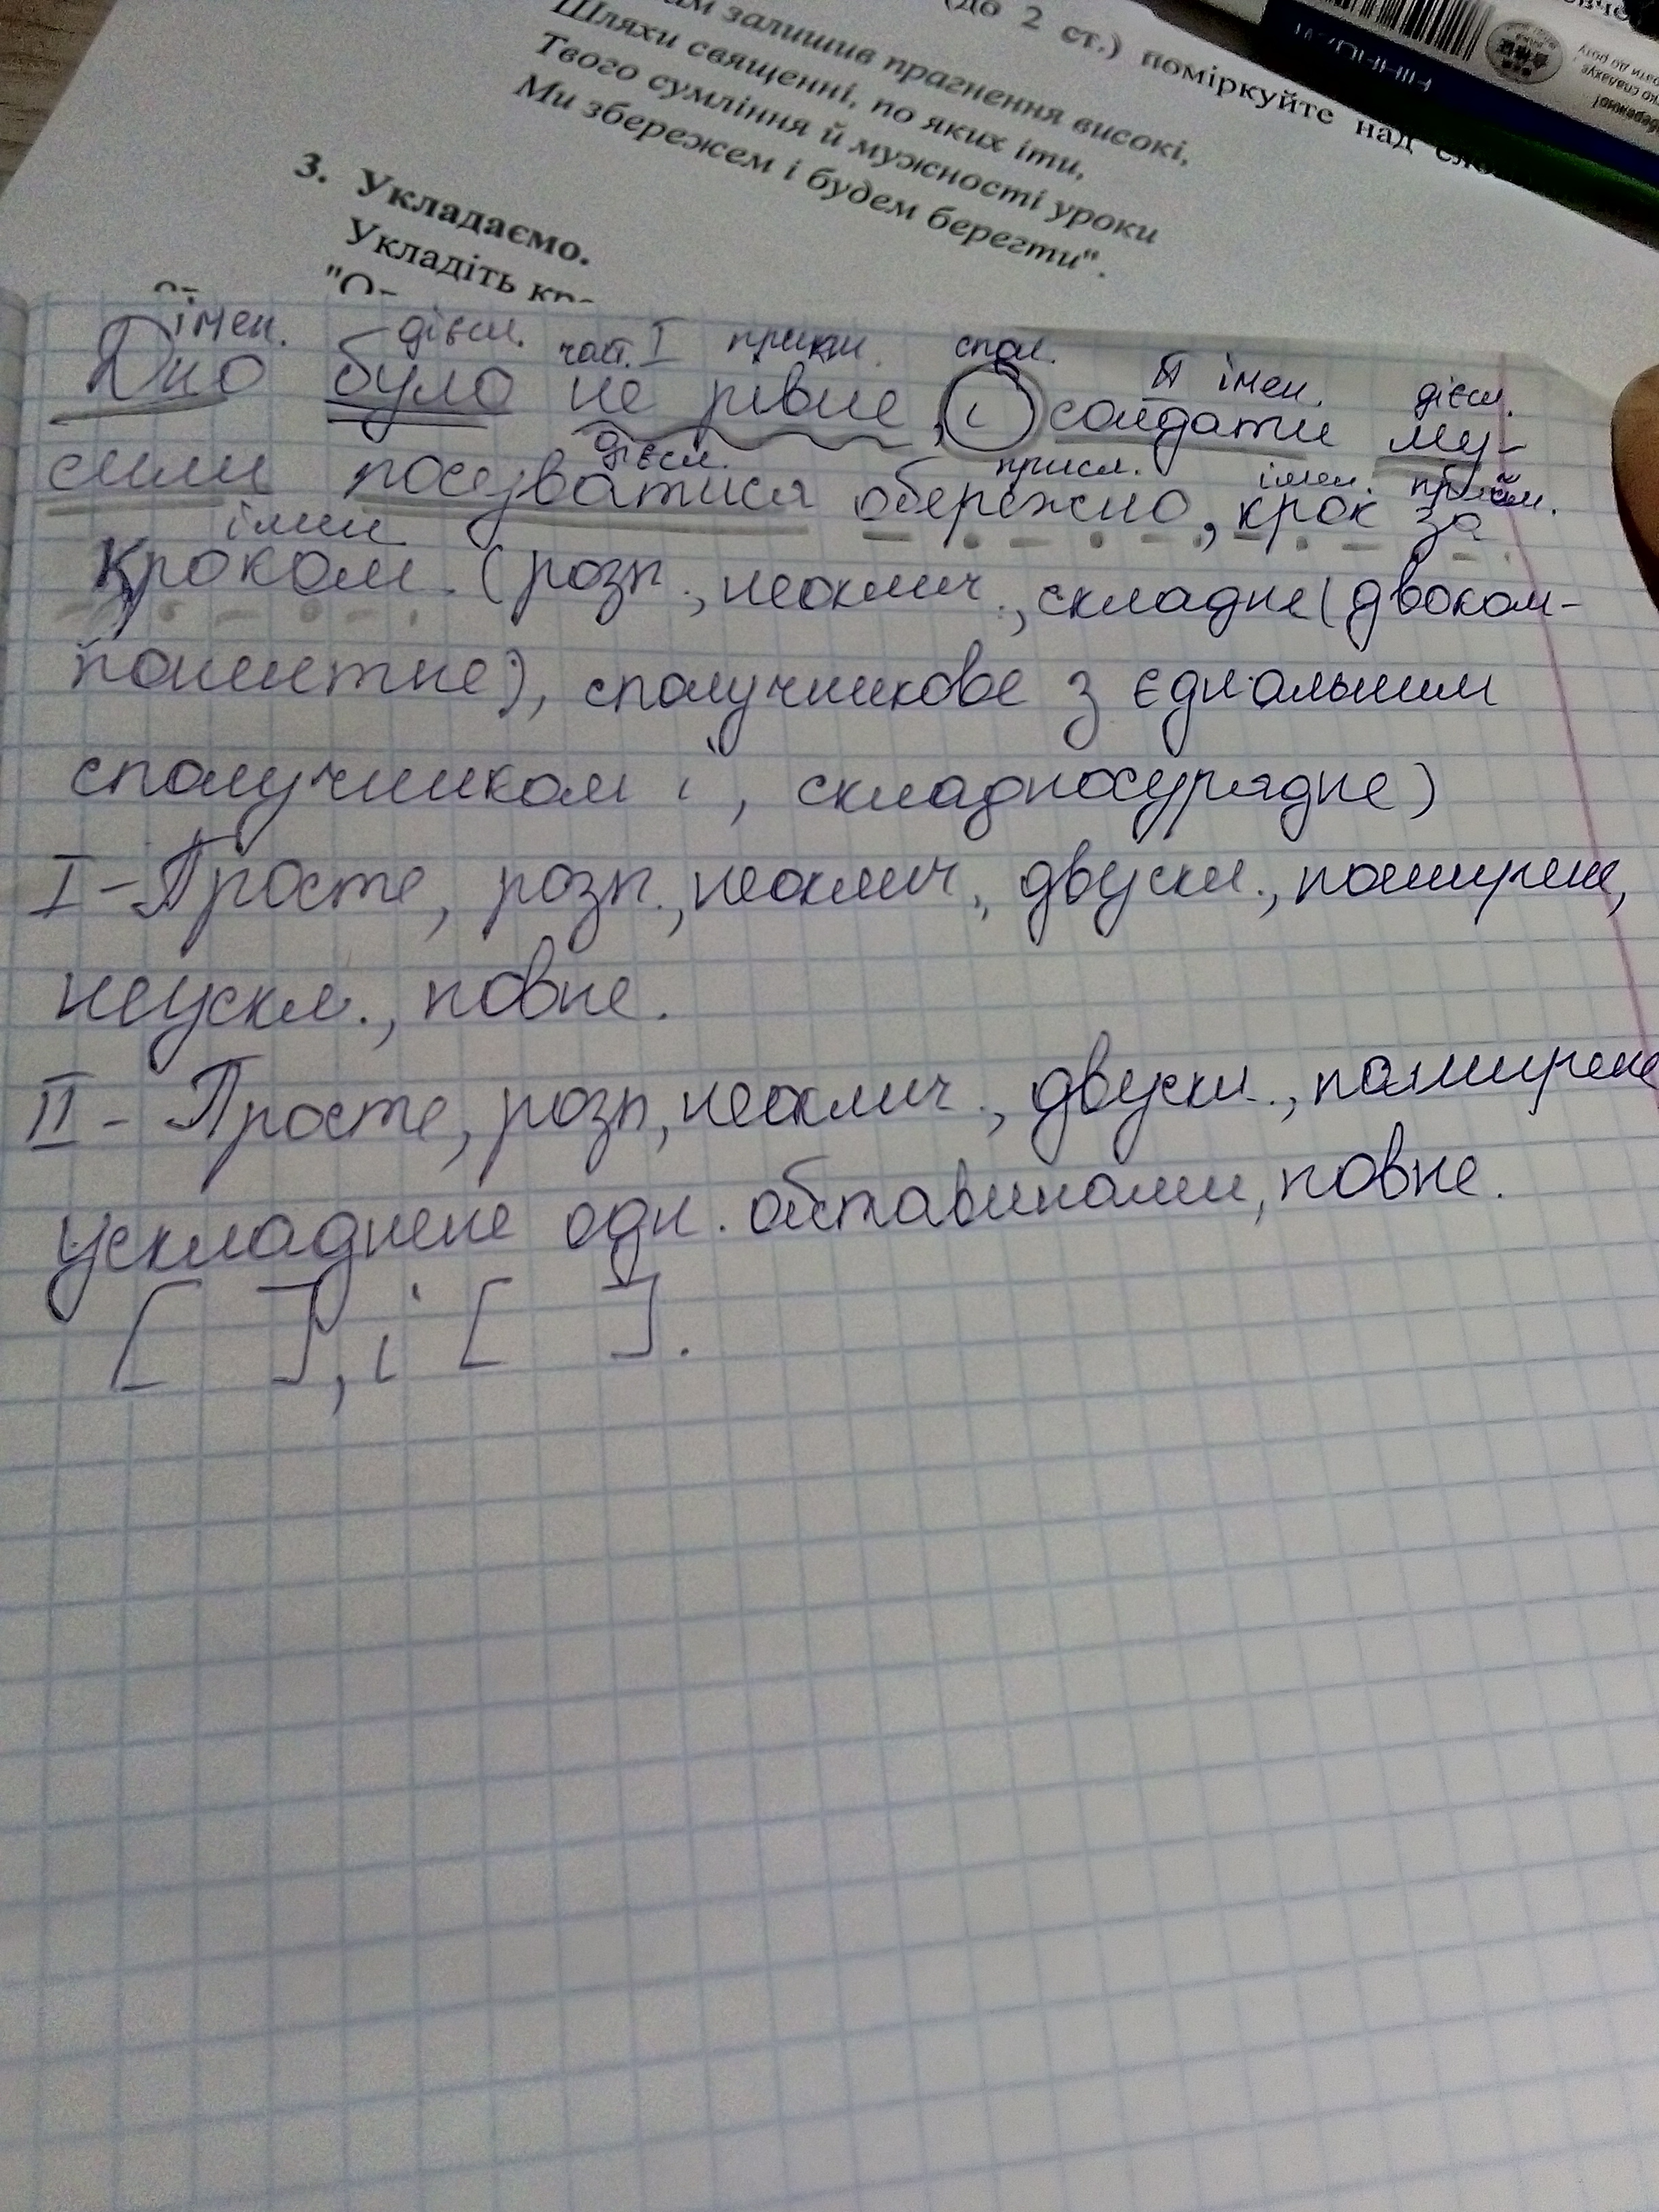 (до 2 ст.) поміркуйте над
залишив прагнення високі,
Шляхи священні, по яких іти,
Твого сумління й мужності уроки
Ми збережем і будем берегти".
3. Укладаємо.
Укладіть
імен. дієсл. част. I прикм. спол. II імен. дієсл.
Дно було не рівне, і солдати му-
дієсл. присл. імен. прийм.
сили посуватися обережно, крок за
імен
кроком. (розп., неоклич., складне (двоком-
понентне), сполучникове з єднальним
сполучником і, складносурядне)
I - Просте, розп., неоклич., двускл., поширене,
неускл., повне.
II - Просте, розп, неоклич., двускл., поширене
ускладнене одн. обставинами, повне.
[ ], і [ ].